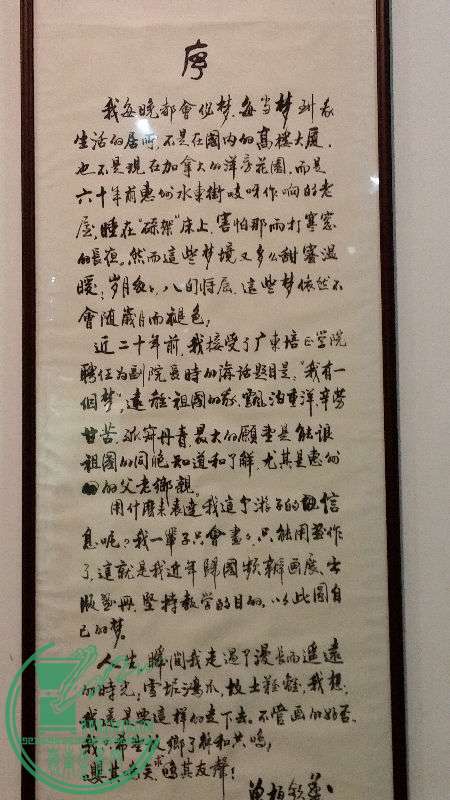 序
我每晚都會做梦，每当梦到我
生活的居所，不是在國内的高楼大厦，
也不是現在加拿大的洋房花園，而是
六十年前惠州水東街吱呀作响的老
屋，睡在“碌架”床上，害怕那雨打寒窓
的長夜。然而這些梦境又多么甜蜜温
暖，岁月 八旬将届，這些梦依然不
會随歲月而褪色，
近二十年前，我接受了广東培正学院
聘任为副院長時的講话题目是，“我有一
個梦”，遠離祖國的我，飄泊重洋辛劳
甘苦，丹青最大的願望是能讓
祖國的同胞知道和了解，尤其是惠州
的父老鄉親。
用什麽来表達我這个游子的信
息呢？我一輩子只會畫，只能用画作
了，這就是我近年歸國频辦画展，出
版画冊，堅持教学的目的，以此圆自
己的梦。
人生，瞬间我走過了漫長而遥遠
的時光，雪坭鴻爪，故土難離，我想，
我還是要這样的走下去，不管画的好否，
我 希望故鄉了解和共鳴，
嚶其鳴矣，求其友聲！